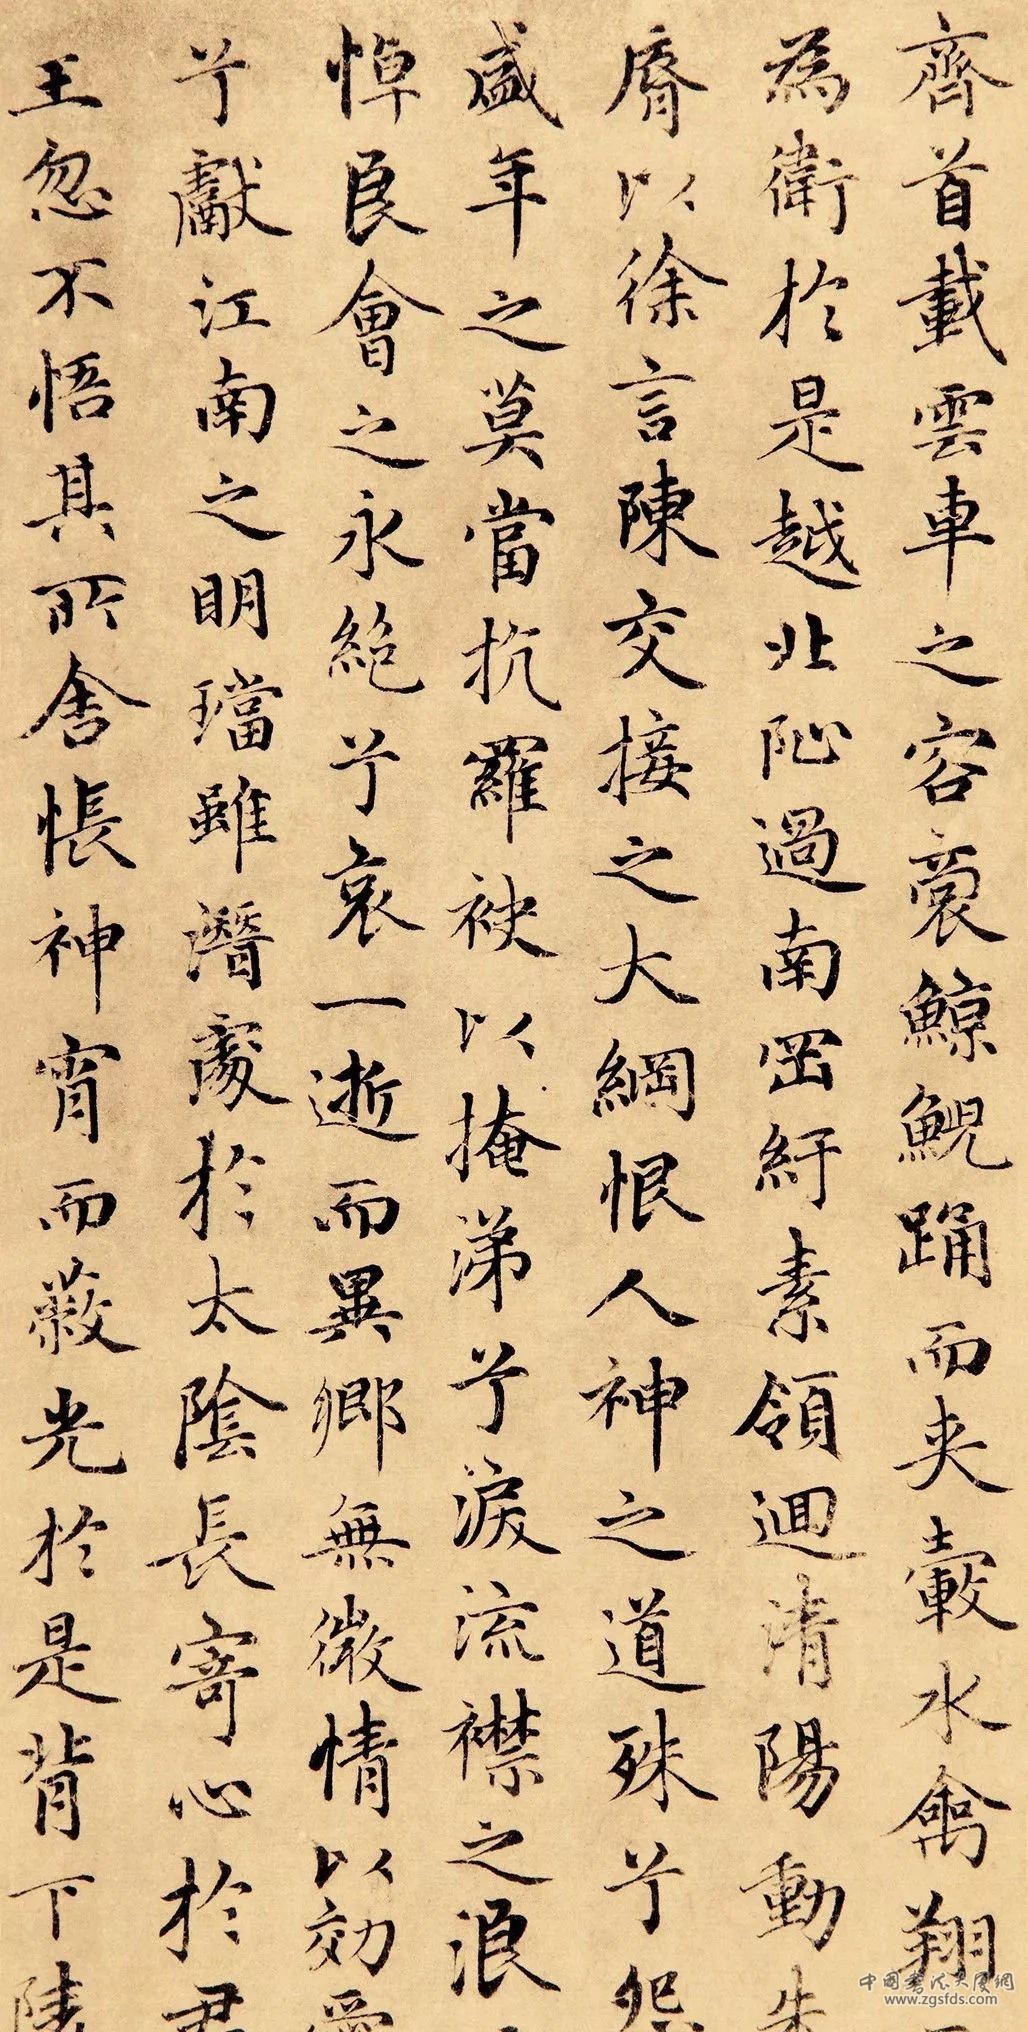 齊首載雲車之容裔鯨鯢踊而夾轂水禽翔
為衛於是越北阯過南岡紆素領迴清陽動朱
脣以徐言陳交接之大綱恨人神之道殊兮怨
盛年之莫當抗羅袂以掩涕兮淚流襟之浪
悼良會之永絕兮哀一逝而異鄉無微情以効愛
兮獻江南之明璫雖潛處於太陰長寄心於君
王忽不悟其所舍悵神宵而蔽光於是背下陵
中国书法大厦网
www.zgsfds.com